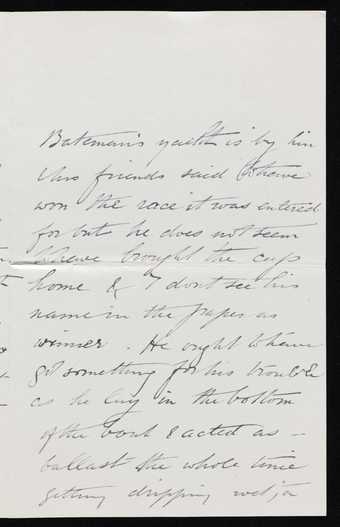 Bateman's yacht is by him
& his friends said to have
won the race it was entered
for but he does not seem
to have brought the cup
home & I dont see his
name in the papers as
winner. He ought to have
got something for his trouble
as he lay in the bottom
of the boat & acted as -
ballast the whole time
getting dripping wet,